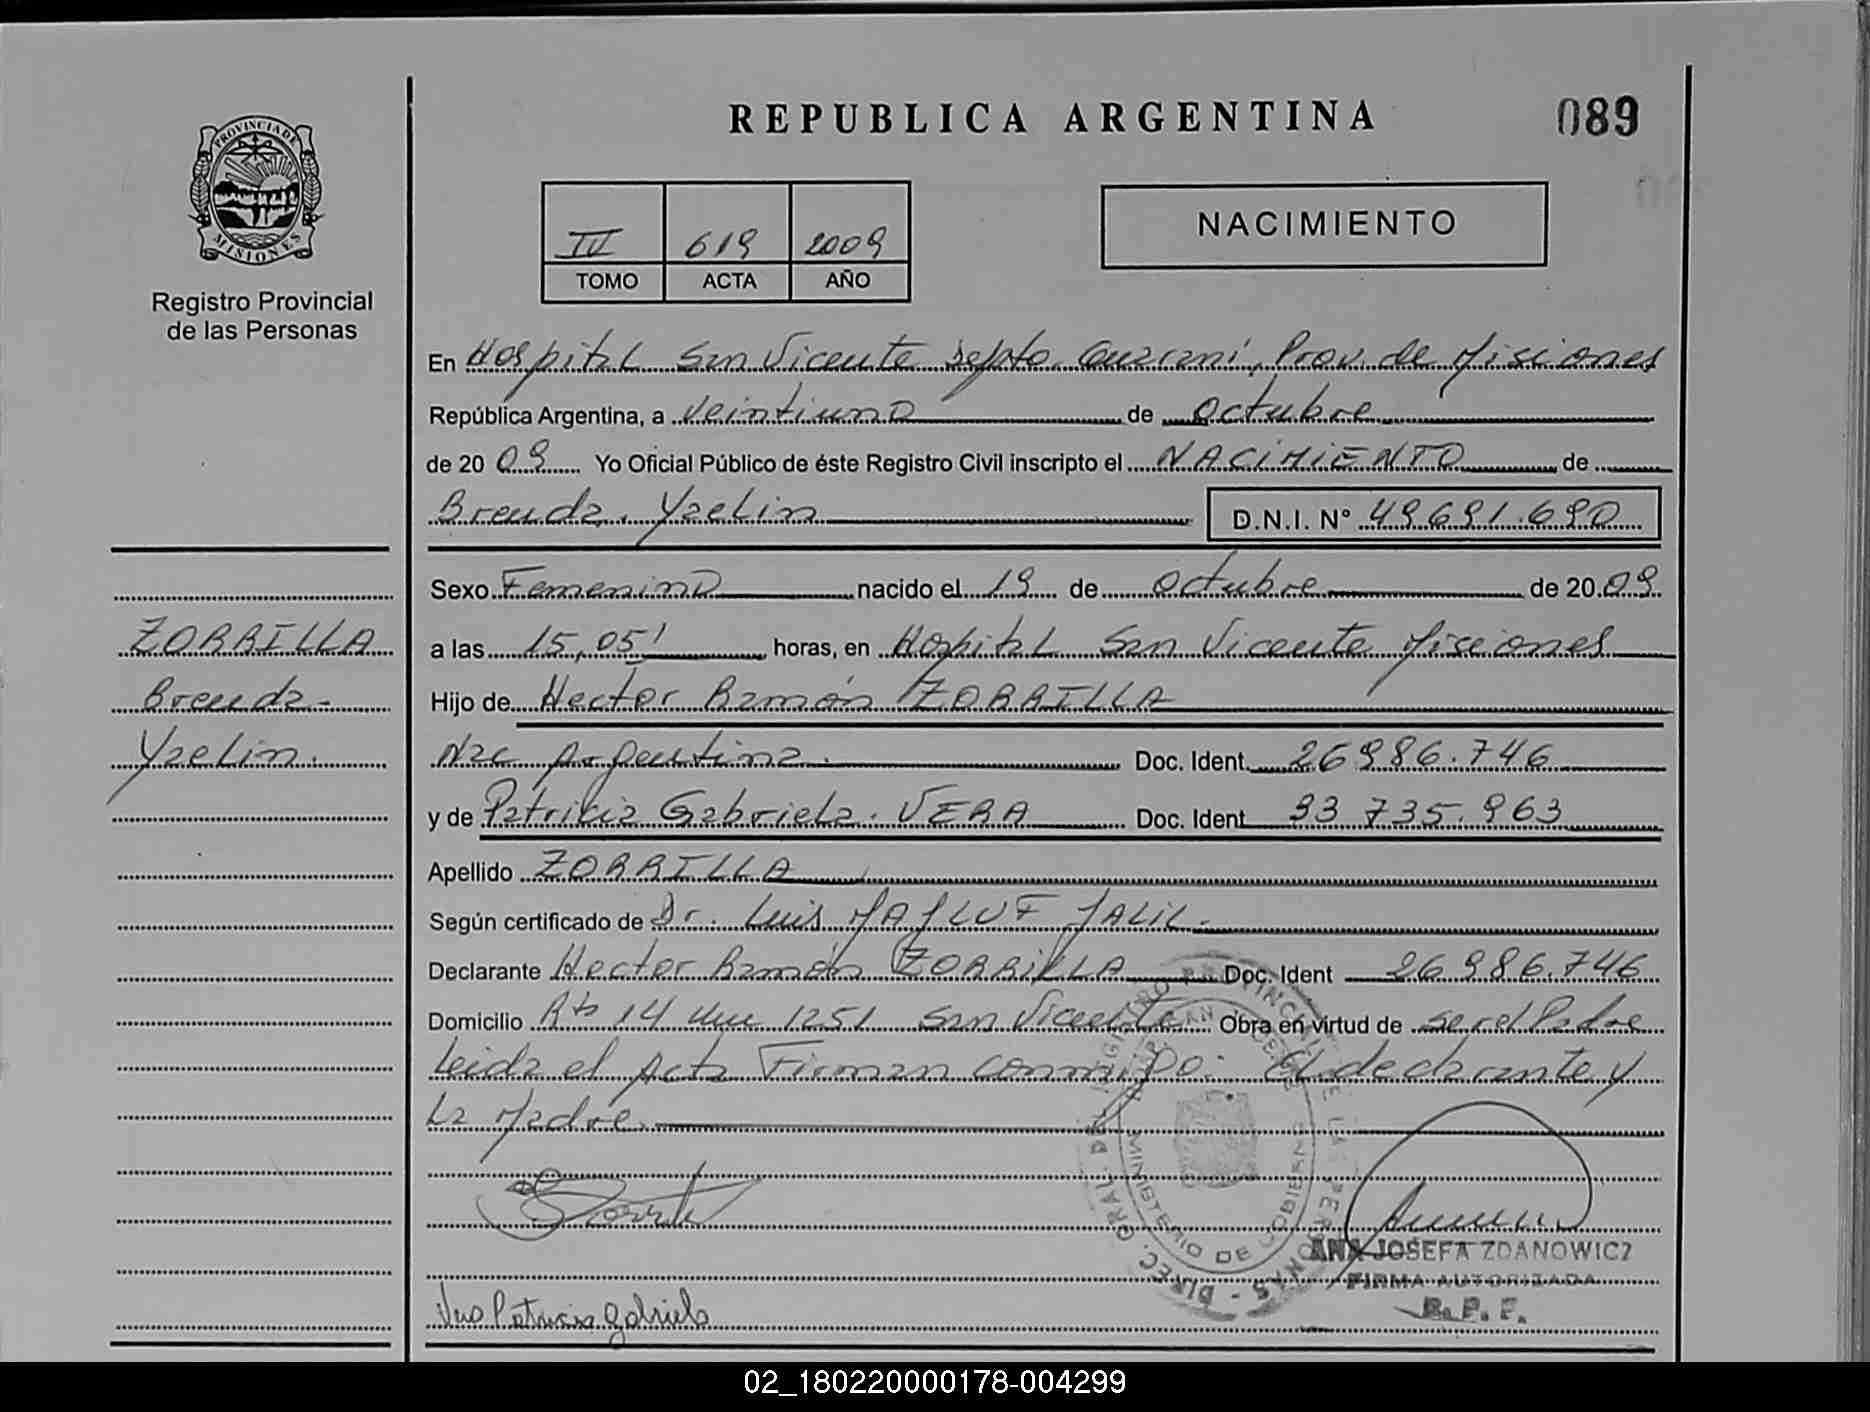 REPUBLICA ARGENTINA
089
PROVINCIA DE
MISIONES
Registro Provincial
de las Personas
IV 619 2009
TOMO ACTA AÑO
NACIMIENTO
En Hospital San Vicente Depto. Guarani, Prov. de Misiones
República Argentina, a veintiuno de octubre
de 20 09 Yo Oficial Público de éste Registro Civil inscripto el NACIMIENTO de
Brenda. Yaelin D.N.I. N° 49691.690
Sexo Femenino nacido el 19 de octubre de 20 09
a las 15,05' horas, en Hospital San Vicente Misiones
Hijo de Hector Ramón ZORRILLA
Nac Argentina. Doc. Ident. 26986.746
y de Patricia Gabriela. VERA Doc. Ident 33 735.963
Apellido ZORRILLA
Según certificado de Dr. Luis MAJLUF JALIL.
Declarante Hector Ramón ZORRILLA Doc. Ident 26 986.746
Domicilio 14 1251 San Vicente Obra en virtud de ser el Padre
Leida el Acta Firman conmigo: El declarante y
La Madre.
ZORRILLA
Brenda-
Yaelin.
DIREC. GRAL. DEL REGISTRO PROVINCIAL DE LAS PERSONAS -
MINISTERIO DE GOBIERNO
ANA JOSEFA ZDANOWICZ
FIRMA AUTORIZADA
R. P. F.
Patricia Gabriela
02_180220000178-004299